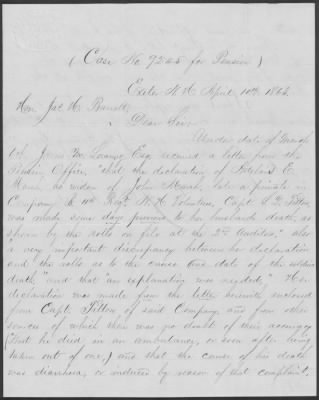 ( Case No 9245 for Pension )
Exeter N.H. April 10th 1863.
Hon. Jos. H. Barrett,
Dear Sir,
Under date of
James M. Lovering Esq. received a letter from the
Pension Office, "that the declaration of E.
as widow of John late a private in
Company 11th Regt. N. H. Volunteers, Capt.
was made some days previous to her husband's death, as
shown by the rolls on file at the 2nd Auditors," also
"a very important discrepancy between her declaration
and the rolls as to the cause and date of the soldiers
death," and that "an explanation was needed," Her
declaration was made from the letter herewith enclosed
from Capt. of said Company, and from other
sources of which there was no doubt of their accuracy
(that he died in an ambulance, or soon after being
taken out of one,) and that the cause of his death
was diarrhoea, or induced by reason of that complaint.